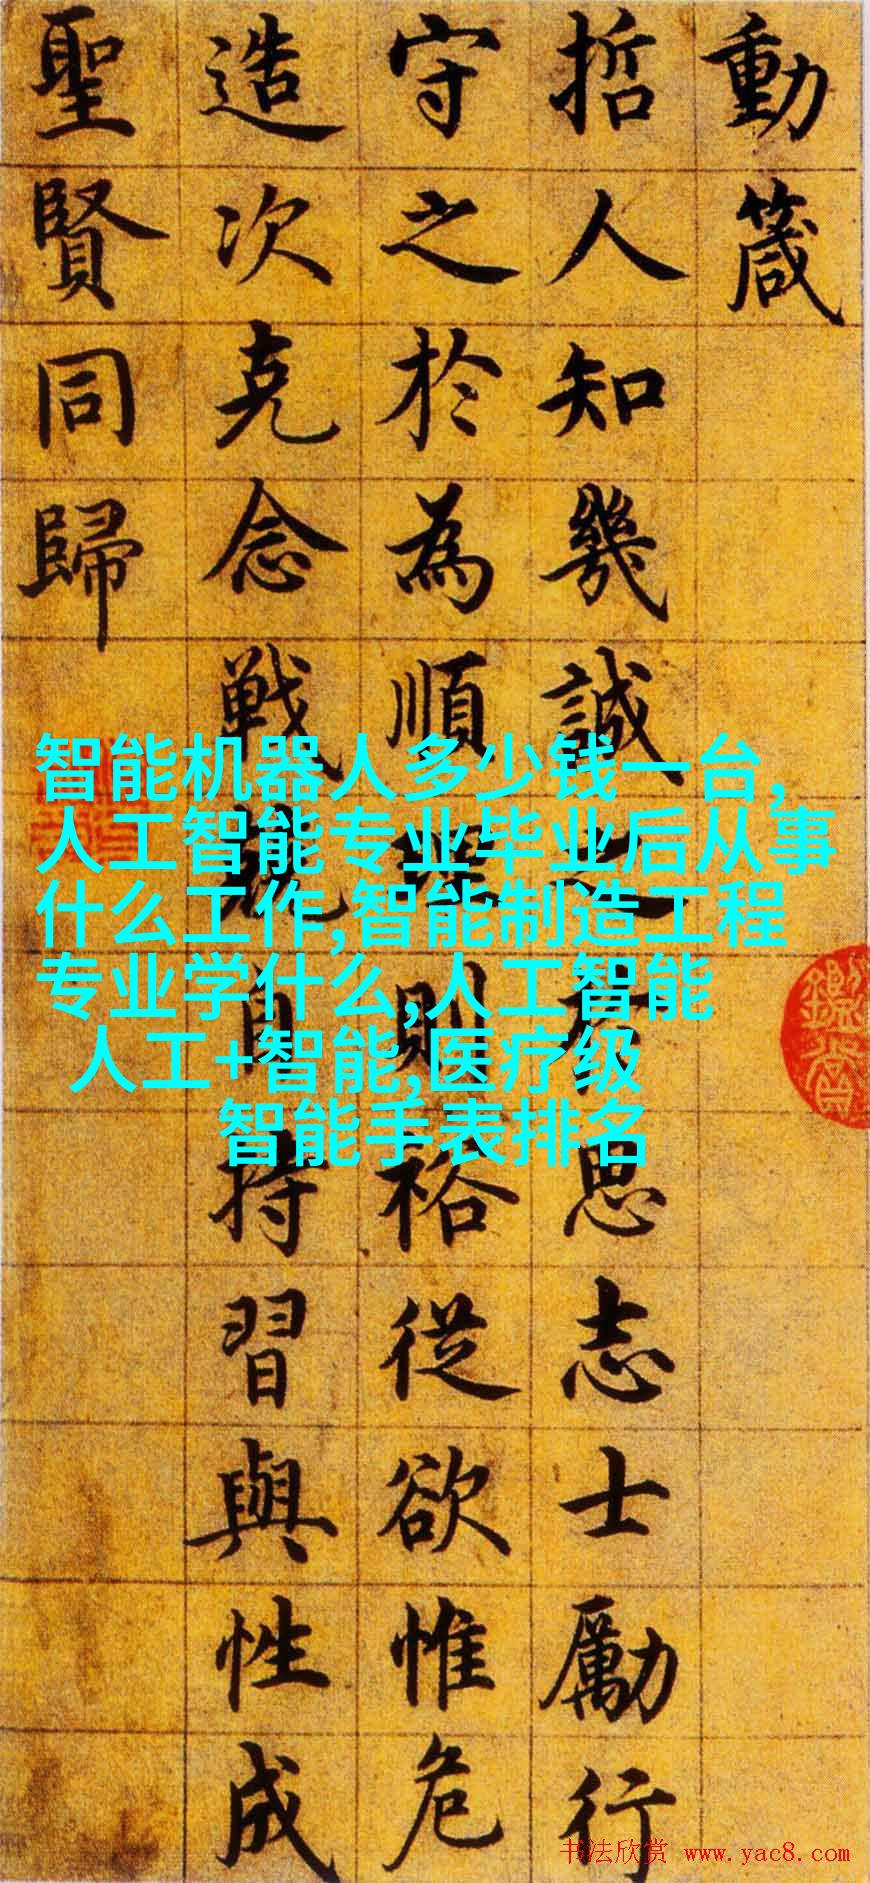 動箴
哲人知幾誠之於思志士勵行
守之於為順理則裕從欲惟危
造次克念戰兢自持習與性成
聖賢同歸
智能机器人多少钱一台,
人工智能专业毕业后从事
什么工作,智能制造工程
专业学什么,人工智能
人工+智能,医疗级
智能手表排名
书法欣赏 www.yac8.com